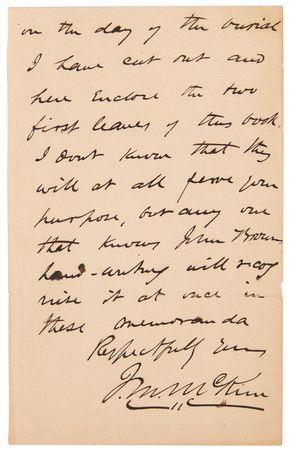 on the day of the burial
I have cut out and
here Enclose the two
first leaves of this book.
I dont know that they
will at all serve your
purpose, but any one
that knows John Browns
hand-writing will recog
nise it at once in
these memoranda
Respectfully yours
J. M. McKim